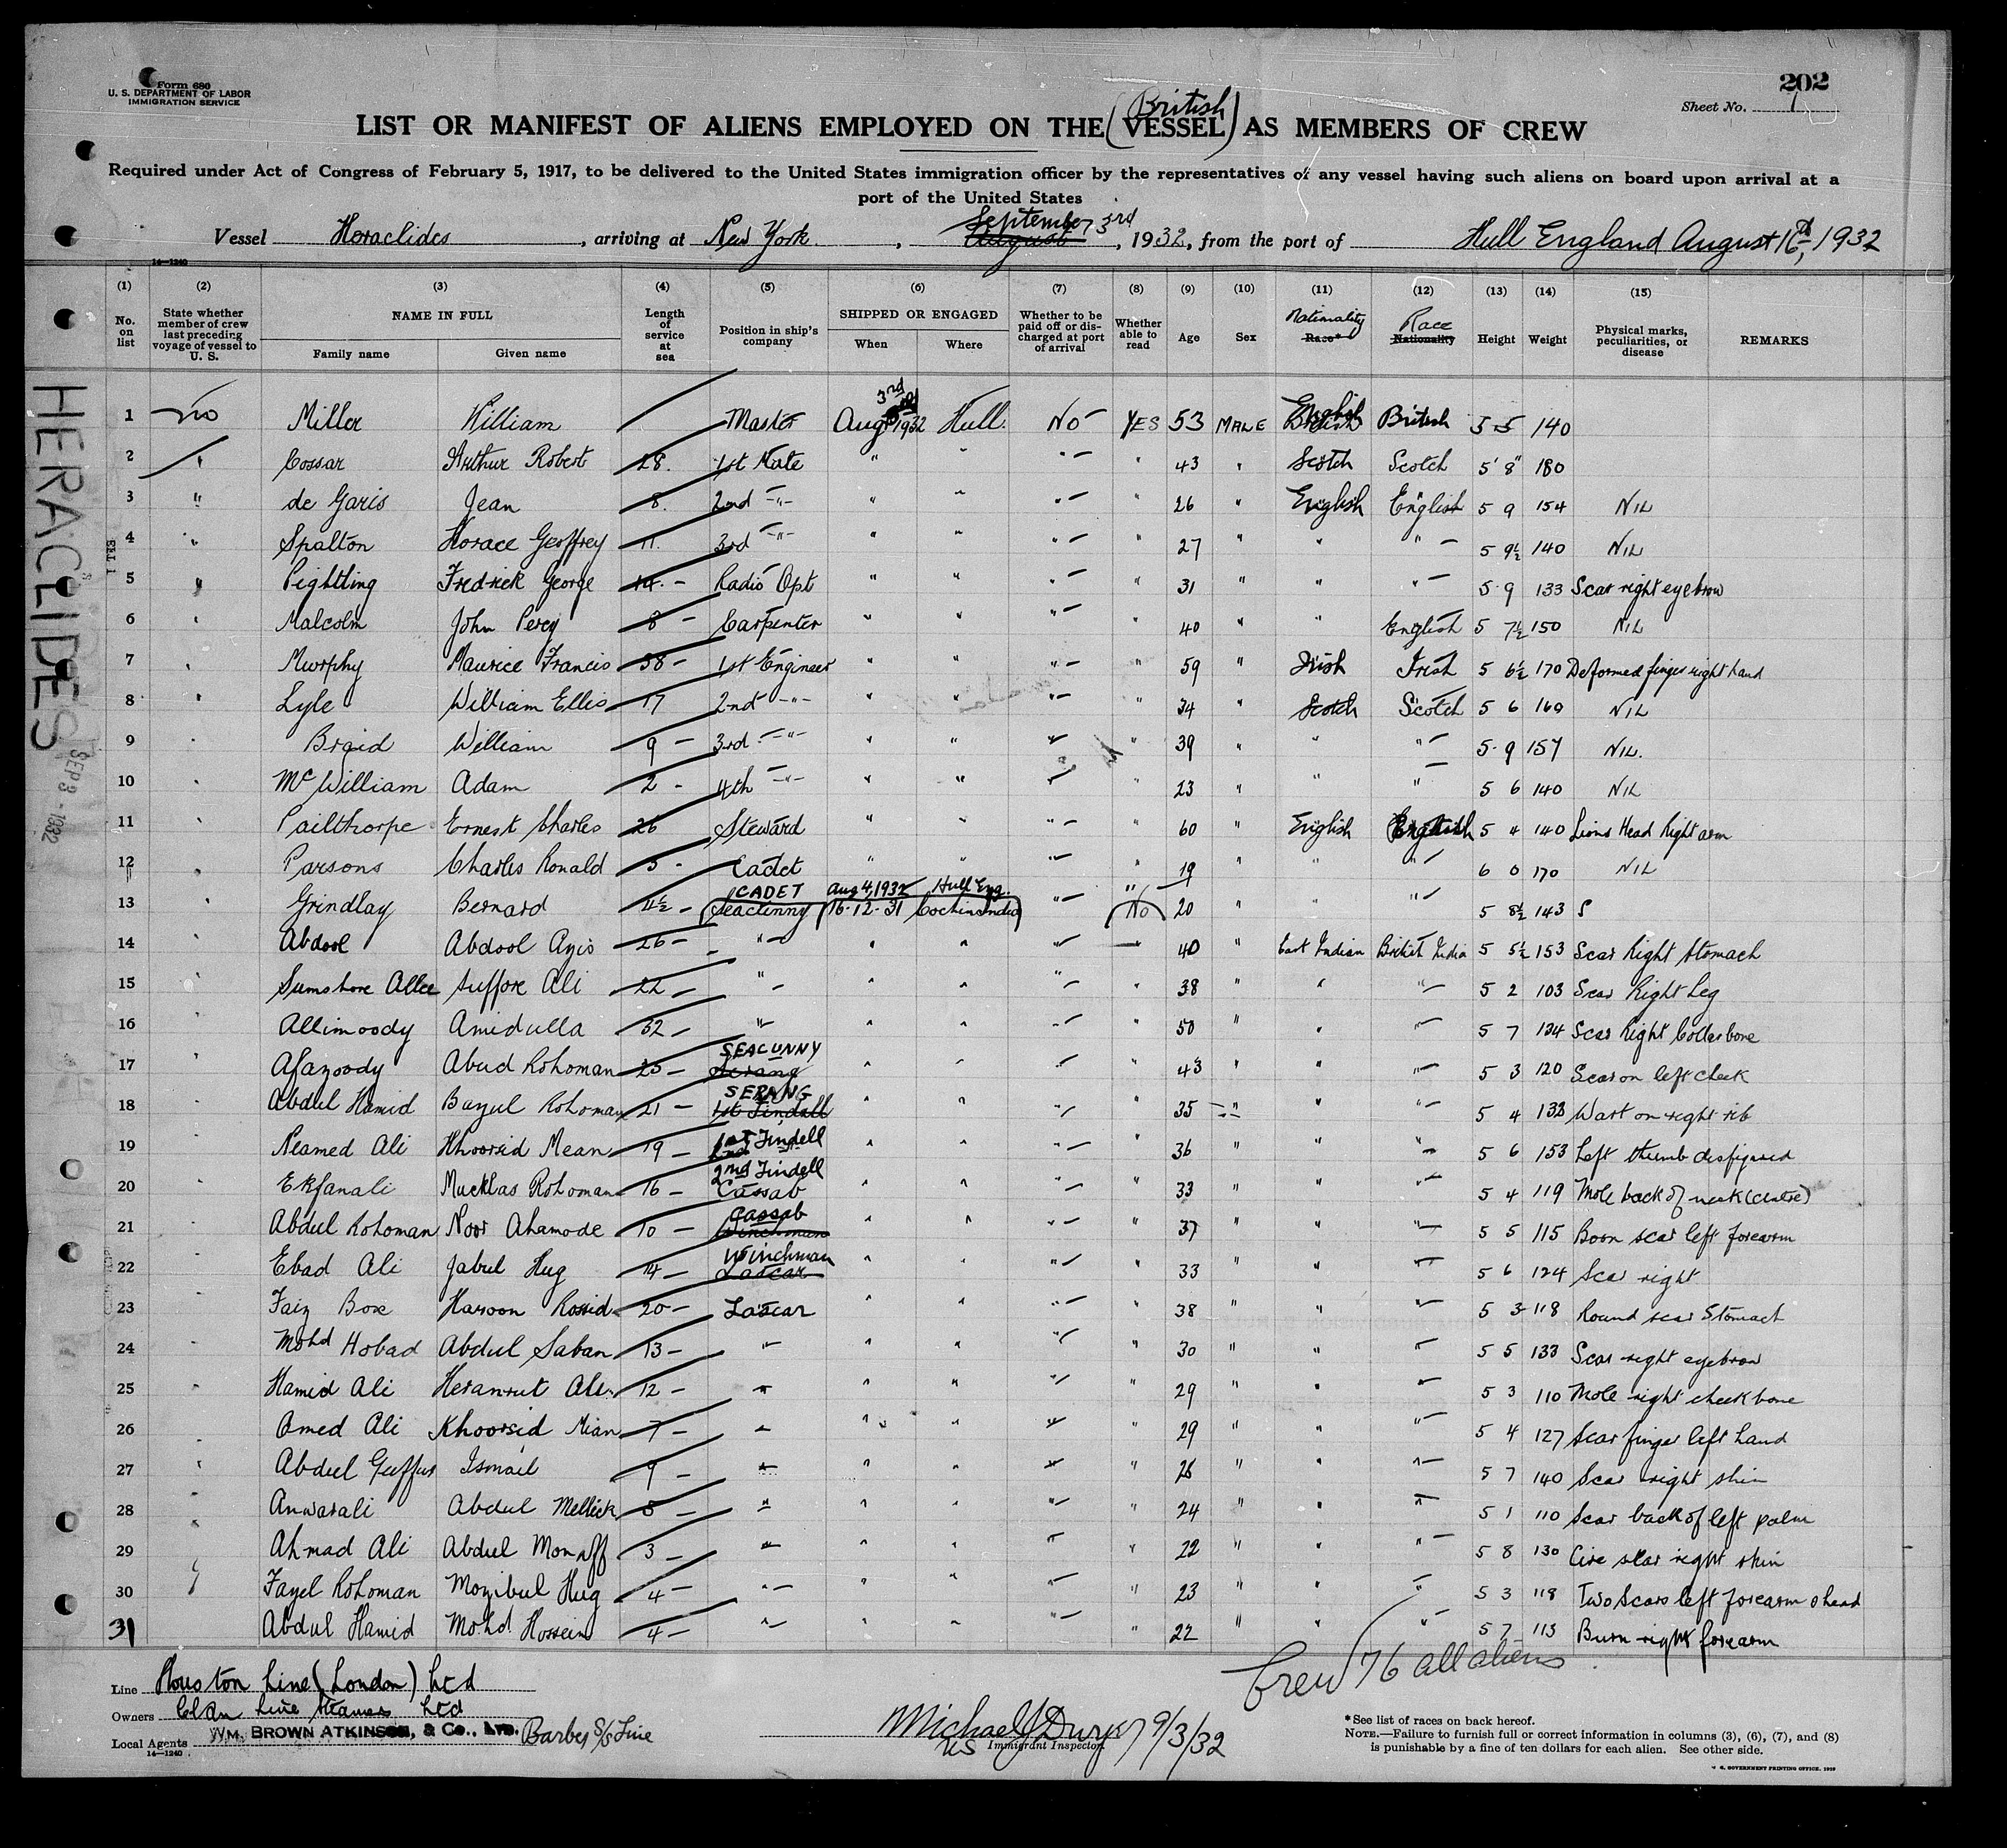 Form 680
U. S. DEPARTMENT OF LABOR
IMMIGRATION SERVICE
202
Sheet No. 1
British
LIST OR MANIFEST OF ALIENS EMPLOYED ON THE (VESSEL) AS MEMBERS OF CREW
Required under Act of Congress of February 5, 1917, to be delivered to the United States immigration officer by the representatives of any vessel having such aliens on board upon arrival at a
port of the United States
September 3rd
Vessel Heraclides, arriving at New York, August, 1932, from the port of Hull England August 16, 1932
14—1240
(1) (2) (3) (4) (5) (6) (7) (8) (9) (10) (11) (12) (13) (14) (15)
No. on list
State whether member of crew last preceding voyage of vessel to U. S.
NAME IN FULL
Family name
Given name
Length of service at sea
Position in ship's company
SHIPPED OR ENGAGED
When
Where
Whether to be paid off or discharged at port of arrival
Whether able to read
Age
Sex
Nationality
Race*
Race
Nationality
Height
Weight
Physical marks, peculiarities, or disease
REMARKS
HERACLIDES
SEP 3 - 1932
1 no Miller William Master Aug 3rd 1932 Hull. No YES 53 MALE English British 5 5 140
2 " Cossar Arthur Robert 28. 1st Mate " " " " 43 " Scotch Scotch 5' 8" 180
3 " de Garis Jean 8. 2nd " " " " " 26 " English English 5 9 154 NIL
4 " Spalton Horace Geoffrey 11. 3rd " " " " " 27 " " " 5 9½ 140 NIL
5 " Pightling Fredrick George 14. Radio Opt " " " " 31 " " " 5 9 133 Scar right eyebrow
6 " Malcolm John Percy 8 Carpenter " " " 40 " " English 5 7½ 150 NIL
7 " Murphy Maurice Francis 38 1st Engineer " " " " 59 " Irish Irish 5 6½ 170 Deformed finger right hand
8 " Lyle William Ellis 17 2nd " " " " " 34 " Scotch Scotch 5 6 160 NIL
9 " Braid William 9 3rd " " " " " 39 " " " 5 9 157 NIL.
10 " McWilliam Adam 2 4th " " " " 23 " " " 5 6 140 NIL
11 " Pailthorpe Ernest Charles 26 Steward " " " " 60 " English English 5 4 140 Lions Head Right arm
12 " Parsons Charles Ronald 5 Cadet " " " " 19 " " " 6 0 170 NIL
CADET Aug 4, 1932 Hull Eng. "
13 Grindlay Bernard 4½ Seacunny 16-12-31 Cochin India " No 20 " " " 5 8½ 143 S
14 " Abdool Abdool Azis 26 " " " " 40 " East Indian British India 5 5½ 153 Scar Right Stomach
15 " Sumshore Allee Suffore Ali 22 " " " " " 38 " " " 5 2 103 Scar Right Leg
16 " Allimoody Amidulla 32 " " " " " 50 " " " 5 7 134 Scar Right Collarbone
SEACUNNY
17 " Afazoody Abud Rohoman 25 Serang " " " " 43 " " " 5 3 120 Scar on left cheek
SERANG
18 " Abdul Hamid Bazul Rohoman 21 1st Tindall " " " " 35 " " " 5 4 138 Wart on right rib
1st Tindell
19 Neamed Ali Khoorsid Mean 19 2nd " " " " 36 " " " 5 6 153 Left thumb disfigured
2nd Tindell
20 " Ekfanali Mucklas Rohoman 16 Cassab " " " " 33 " " " 5 4 119 Mole back of neck (centre)
Cassab
21 " Abdul Rohoman Noor Ahamode 10 Winchman " " " " 37 " " " 5 5 115 Born scar left forearm
Winchman
22 " Ebad Ali Jabul Hug 14 Lascar " " " " 33 " " " 5 6 124 Scar right
23 " Faiz Box Haroon Rossid 20 Lascar " " " " 38 " " " 5 3 118 Round scar Stomach
24 " Mohd Hobad Abdul Saban 13 " " " " " 30 " " " 5 5 133 Scar right eyebrow
25 " Hamid Ali Heranrut Ali 12 " " " " " 29 " " " 5 3 110 Mole right cheekbone
26 " Omed Ali Khoorsid Mian 7 " " " " " 29 " " " 5 4 127 Scar finger left hand
27 " Abdul Guffur Ismail 9 " " " " " 26 " " " 5 7 140 Scar right shin
28 " Anwarali Abdul Mellick 5 " " " " " 24 " " " 5 1 110 Scar back of left palm
29 " Ahmad Ali Abdul Monaff 3 " " " " " 22 " " " 5 8 130 Circ scar right shin
30 " Fazel Rohoman Mozibul Hug 4 " " " " " 23 " " " 5 3 118 Two Scars left forearm & head
31 Abdul Hamid Mohd Hossein 4 " " " " " 22 " " " 5 7 113 Burn right forearm
Crew 76 all aliens
Line Houston Line (London) Ltd
Owners Clan Line Steamers Ltd
Local Agents WM. BROWN ATKINSON, & Co., LTD. Barber S/S Line
14—1240
Michael J Dwyer 9/3/32
US Immigrant Inspector.
*See list of races on back hereof.
NOTE.—Failure to furnish full or correct information in columns (3), (6), (7), and (8)
is punishable by a fine of ten dollars for each alien. See other side.
U. S. GOVERNMENT PRINTING OFFICE. 1929